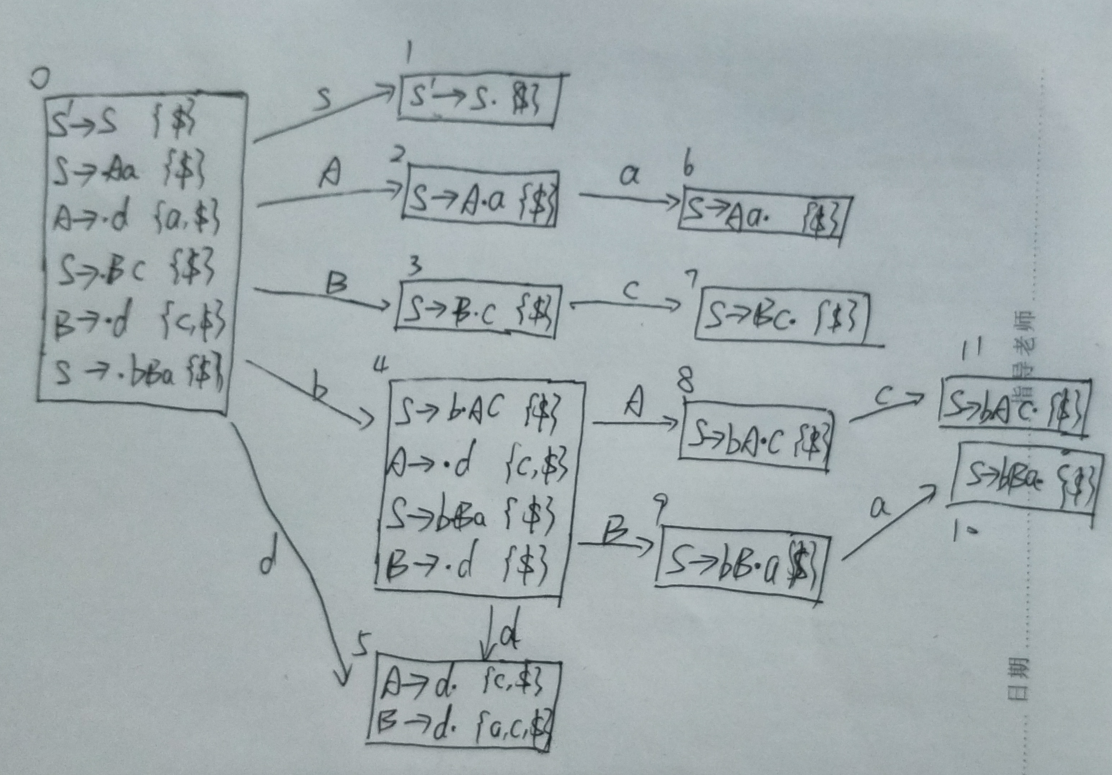 0
S'→S {$}
S→Aa {$}
A→·d {a,$}
S→·Bc {$}
B→·d {c,$}
S→·bBa {$}
S
1
S'→S· {$}
A
2
S→A·a {$}
a
6
S→Aa· {$}
B
3
S→B·c {$}
c
7
S→Bc· {$}
b
4
S→b·AC {$}
A→·d {c,$}
S→bBa {$}
B→·d {$}
A
8
S→bA·C {$}
c
11
S→bAC· {$}
B
9
S→bB·a {$}
a
S→bBa· {$}
10
d
d
5
A→d· {c,$}
B→d· {a,c,$}
指导老师
日期